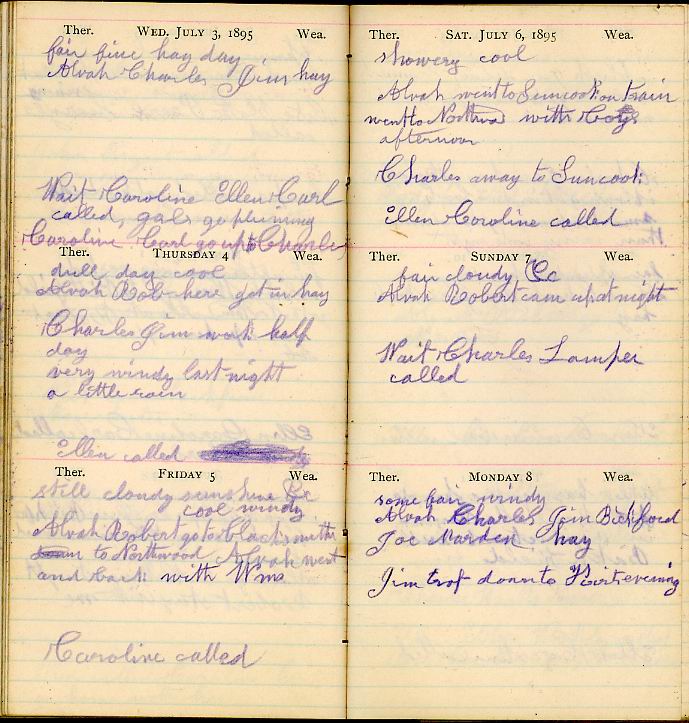 Ther. WED. JULY 3, 1895 Wea.
fair fine hay day
Alvah Charles Jim hay
Wait Caroline Ellen Carl
called, gals go pluming
Caroline Carl go up to Charles
Ther. THURSDAY 4 Wea.
dull day cool
Alvah Rob here get in hay
Charles Jim work half
day
very windy last night
a little rain
Ellen called
Ther. FRIDAY 5 Wea.
still cloudy sunshine &c
cool windy
Alvah Robert go to with
to Northwood Alvah went
and back with Wm
Caroline called
Ther. SAT. JULY 6, 1895 Wea.
showery cool
Alvah went to Suncook on train
went to with
afternoon
Charles away to Suncook
Ellen Caroline called
Ther. SUNDAY 7 Wea.
fair cloudy &c
Alvah Robert cam up at night
Wait Charles Lamper
called
Ther. MONDAY 8 Wea.
some fair windy
Alvah Charles Jim Bickford
Joe Marden hay
Jim down to evening